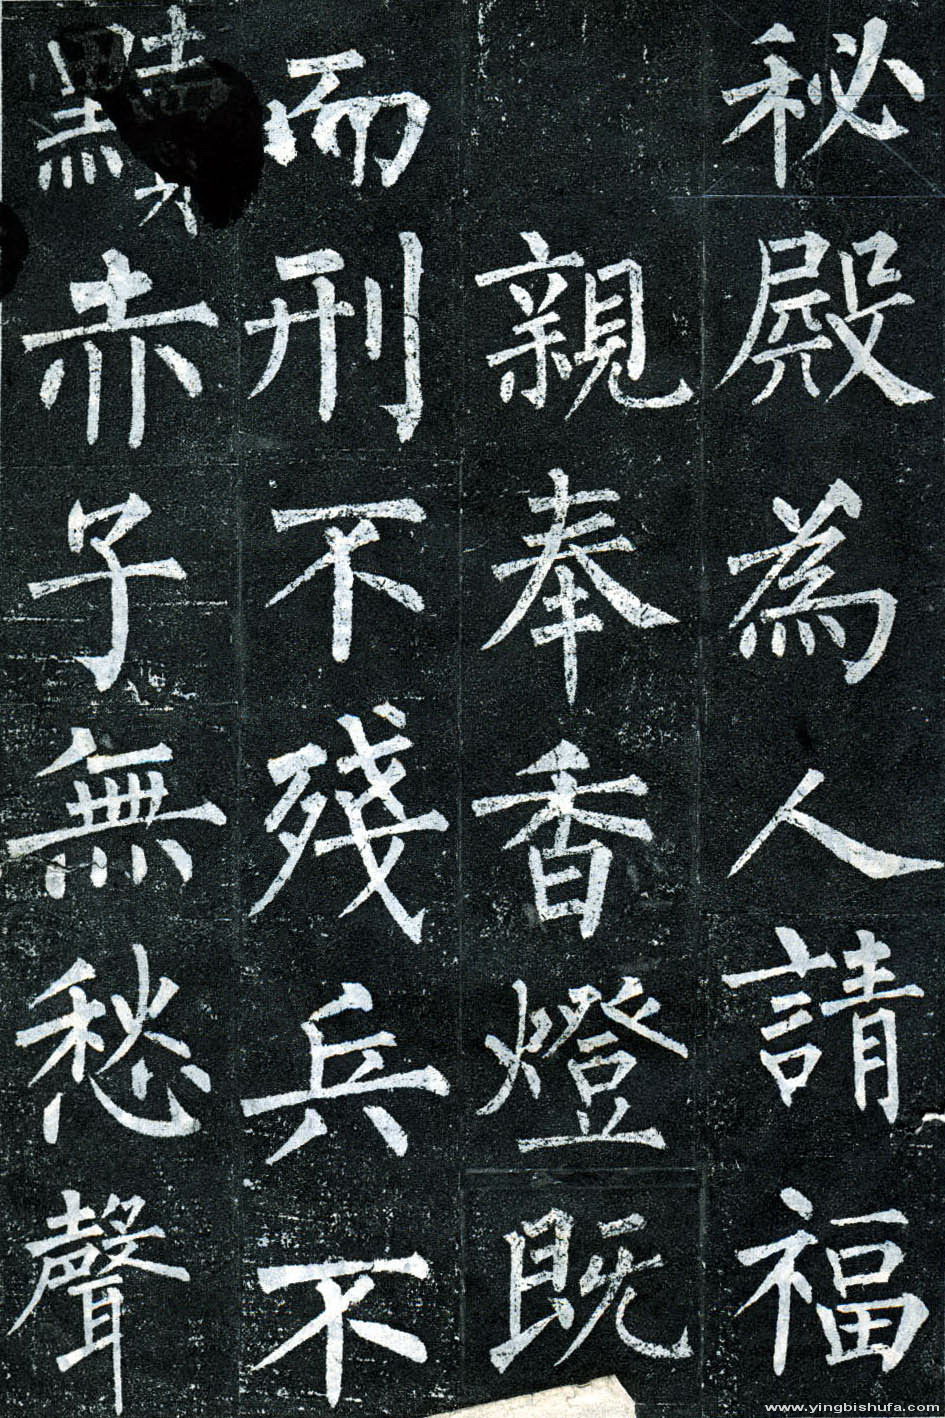 秘殿為人請福
親奉香燈既
而刑不殘兵不
黷赤子無愁聲
www.yingbishufa.com